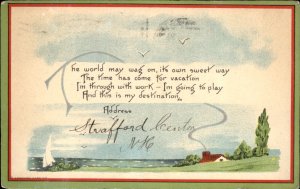 The world may wag on, it's own sweet way
The time has come for vacation
I'm through with work – I'm going to play
And this is my destination,
Address
Strafford Center
N.H.